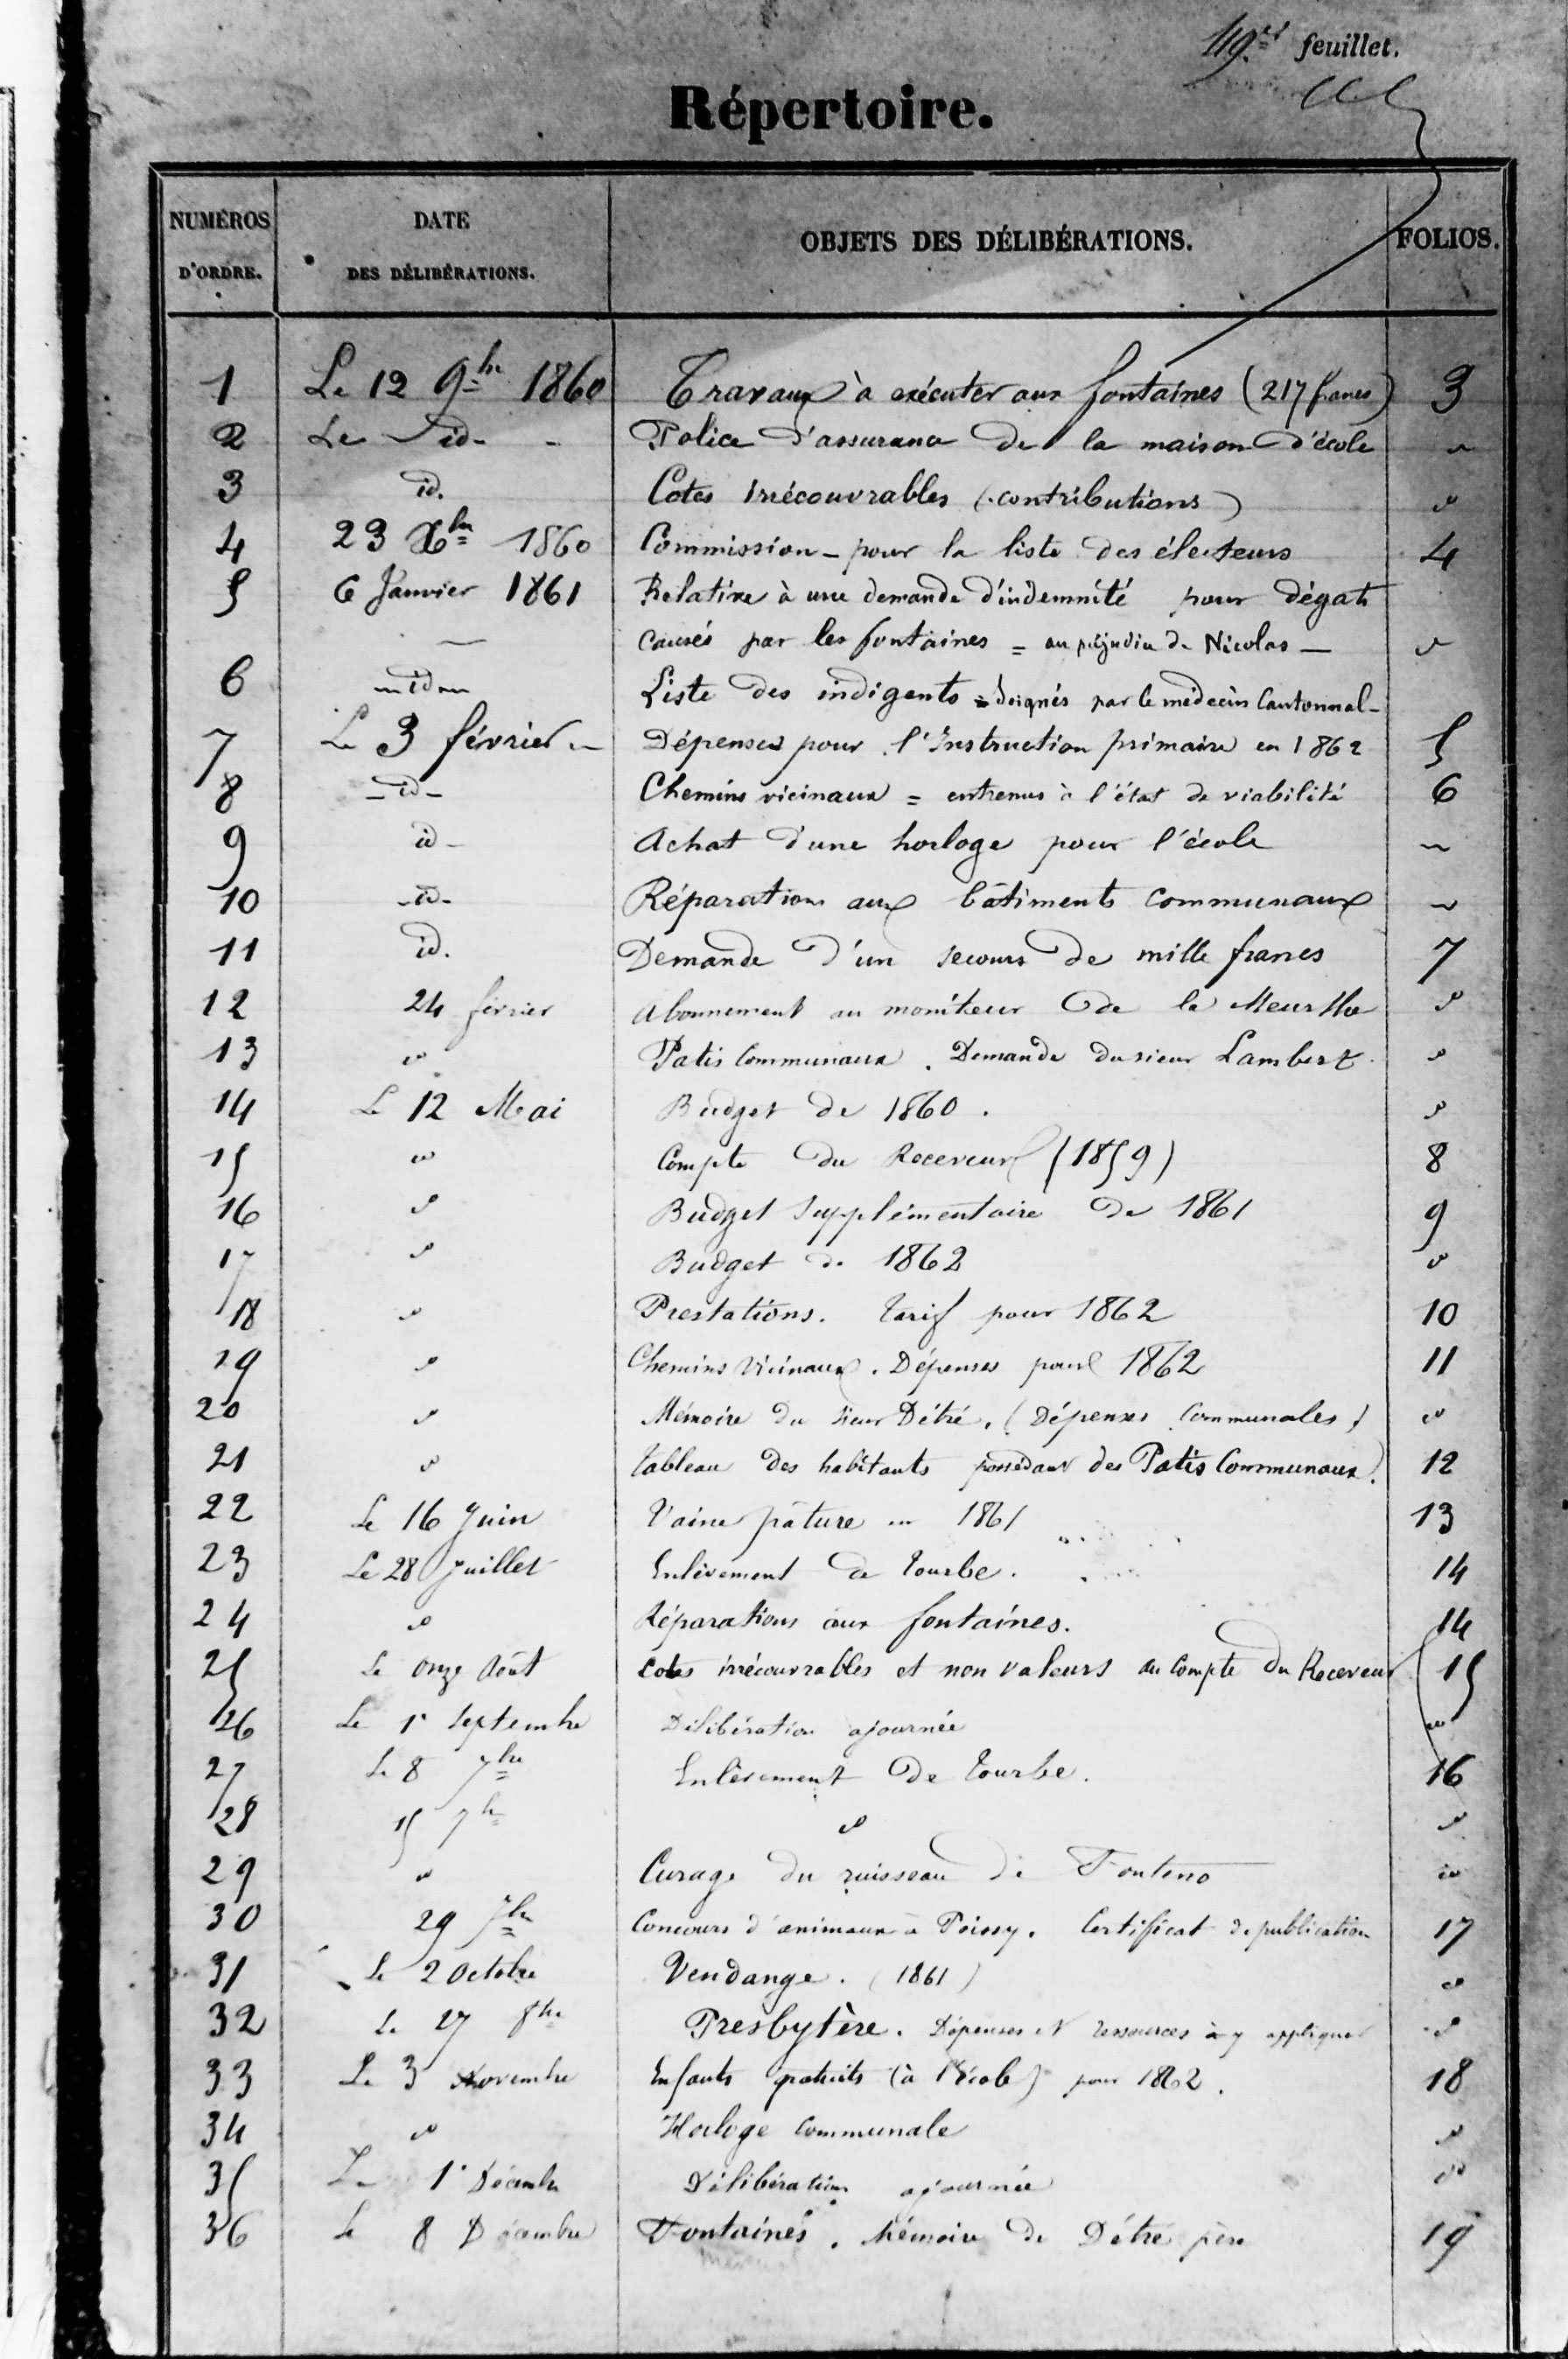 49.et feuillet.
Répertoire.
NUMÉROS D'ORDRE. DATE DES DÉLIBÉRATIONS. OBJETS DES DÉLIBÉRATIONS. FOLIOS.
1 Le 12 9bre 1860 Travaux à exécuter aux fontaines (217 francs) 3
2 Le id - Police d'assurance de la maison d'école "
3 id. Cotes irrécouvrables (contributions) "
4 23 Xbre 1860 Commission - pour la liste des électeurs 4
5 6 Janvier 1861 Relative à une demande d'indemnité pour dégats
— causés par les fontaines = au préjudice de Nicolas — "
6 - id - Liste des indigents soignés par le médecin Cantonnal -
7 Le 3 février - Dépenses pour l'Instruction primaire en 1862 5
8 - id - Chemins vicinaux = entrenus à l'état de viabilité 6
9 id - Achat d'une horloge pour l'école "
10 - id - Réparations aux bâtiments communaux "
11 id. Demande d'un secours de mille francs 7
12 24 février Abonnement au moniteur de la Meurthe "
13 " Patis Communaux. Demande du sieur Lambert. "
14 Le 12 Mai Budget de 1860. "
15 " Compte du Receveur (1859) 8
16 " Budget Supplémentaire de 1861 9
17 " Budget de 1862 "
18 " Prestations. Tarif pour 1862 10
19 " Chemins Vicinaux. Dépenses pour 1862 11
20 " Mémoire du sieur Détré. (Dépenses Communales) "
21 " Tableau des habitants possédant des Patis Communaux. 12
22 Le 16 Juin Vaine pâture " 1861 13
23 Le 28 Juillet Enlèvement de tourbe. 14
24 " Réparations aux fontaines. 14
25 Le onze Août Cotes irrécouvrables et non valeurs au Compte du Receveur 15
26 Le 1r Septembre Délibération ajournée "
27 Le 8 7bre Enlèvement de tourbe. 16
28 15 7bre " "
29 " Curage du ruisseau de Fonteno "
30 29 7bre Concours d'animaux à Poissy. Certificat de publication 17
31 Le 2 Octobre Vendange. (1861) "
32 Le 27 8bre Presbytère. Dépenses et ressources à y appliquer "
33 Le 3 Novembre Enfants gratuits (à l'école) pour 1862. 18
34 " Horloge Communale "
35 Le 1r Décembre Délibération ajournée "
36 Le 8 Décembre Fontaines. Mémoire de Détré père 19